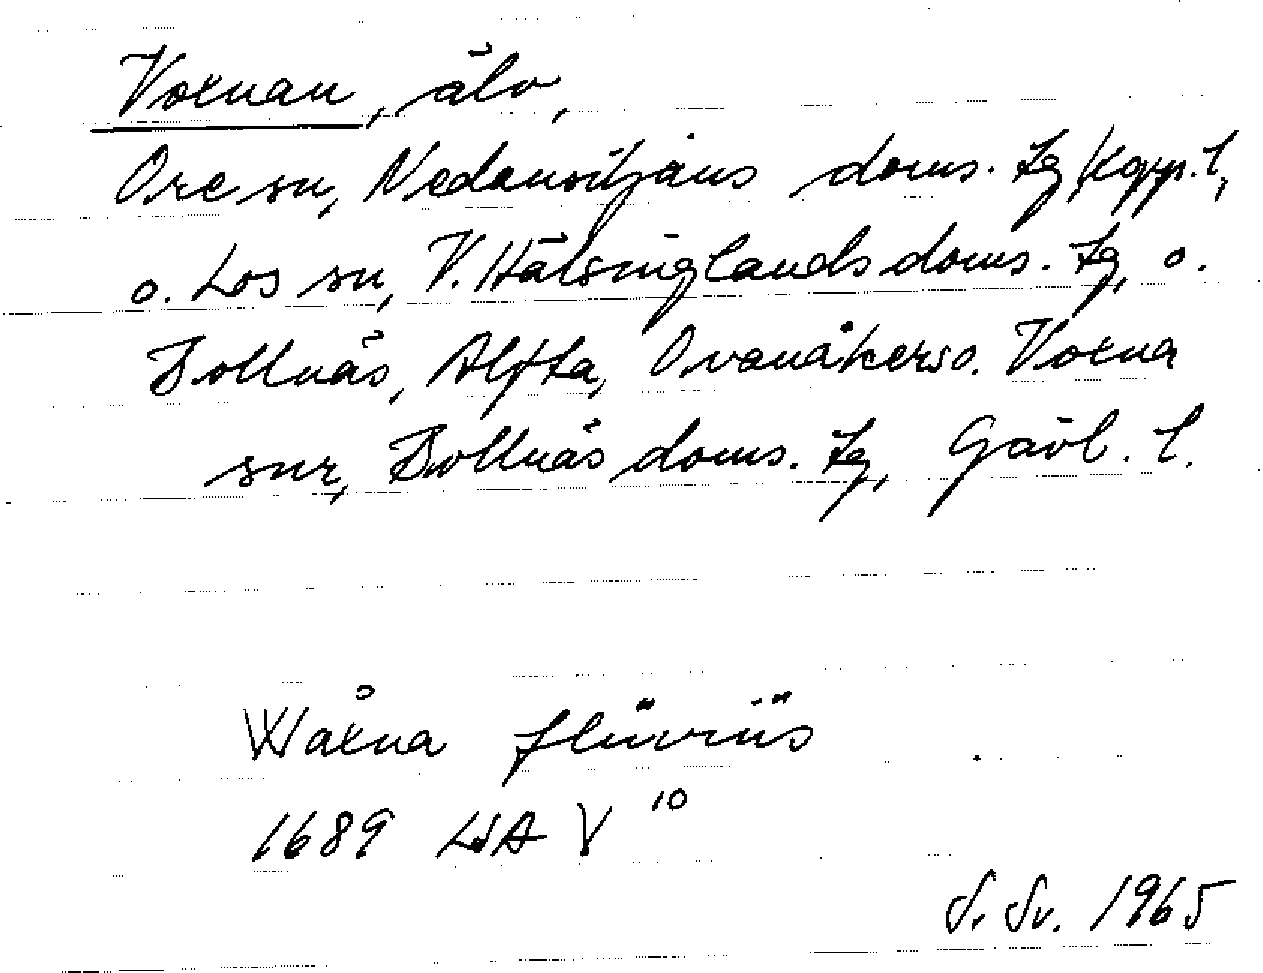 Voxnan, älv,
Ore sn, Nedansiljans doms. tg, Kopp. l,
o. Los sn, V. Hälsinglands doms. tg, o.
Bollnäs, Alfta, Ovanåkers o. Voxna
snr, Bollnäs doms. tg, Gävl. l.
Wåxna flüviüs
1689 LSA V 10
S. Sv. 1965